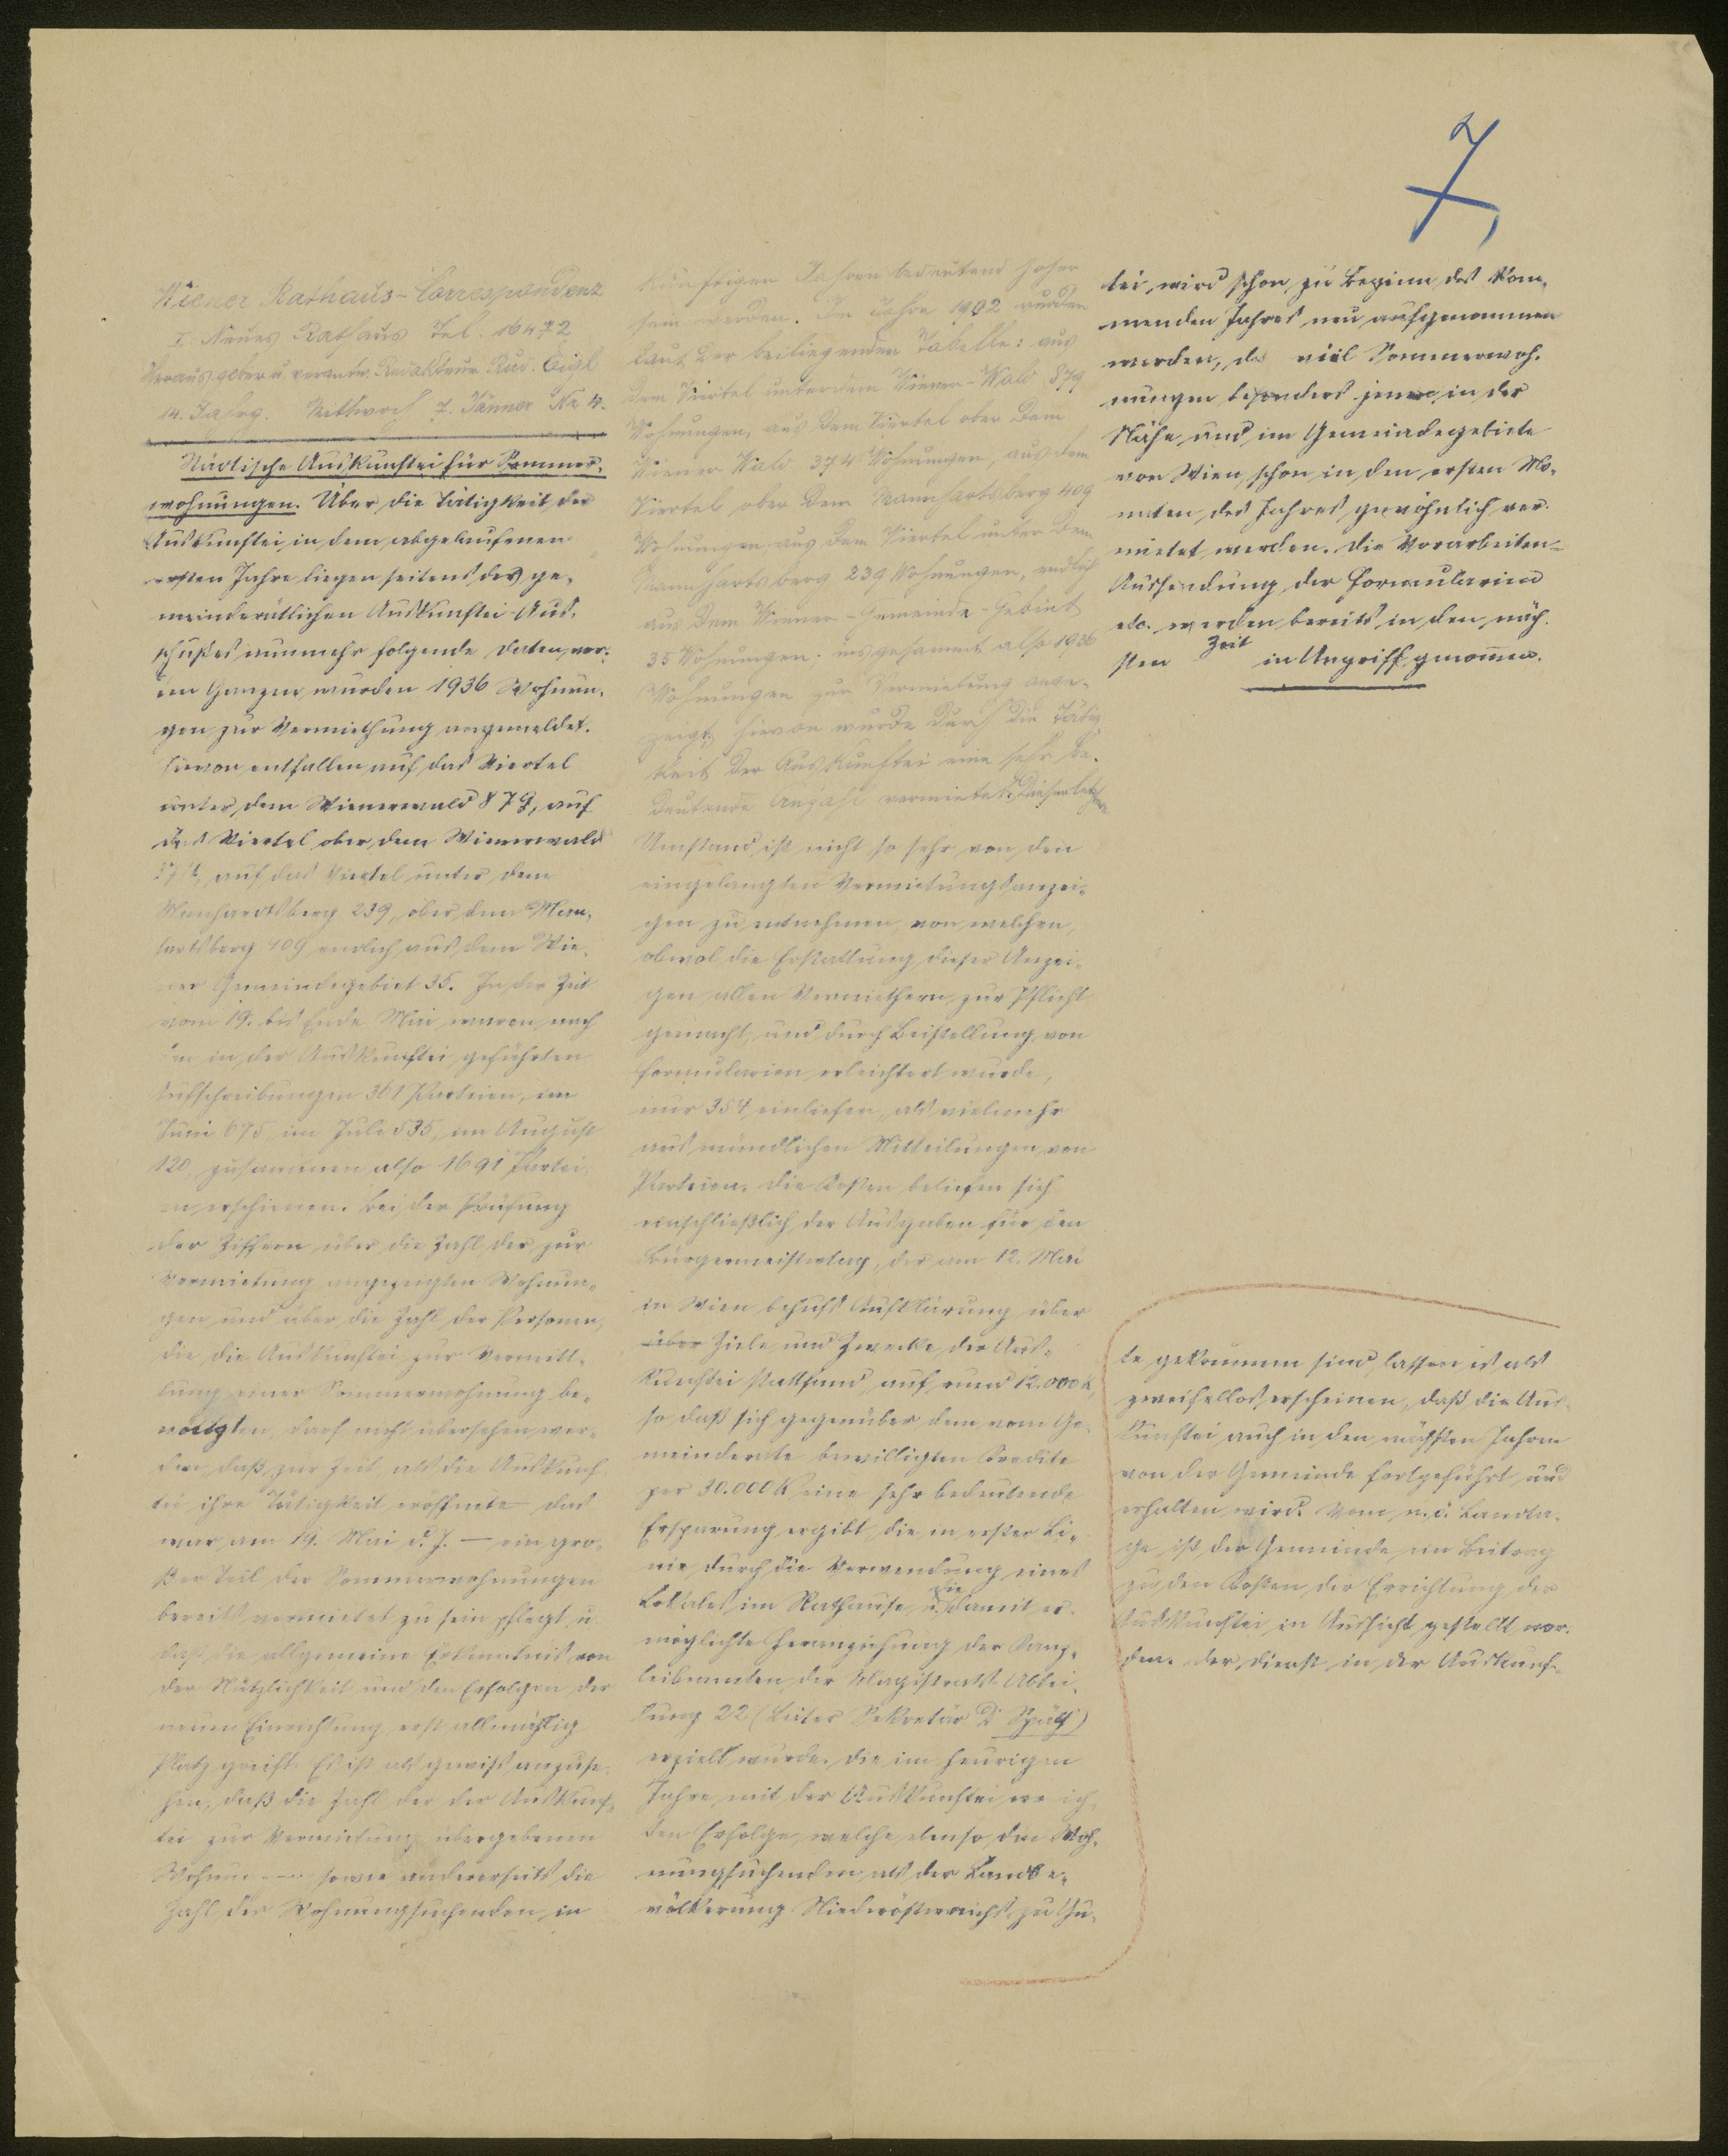 7
Wiener Rathaus-Correspondenz
I. Neues Rathaus Tel. 16472
Herausgeber u. verantw. Redakteur Rud. Eigl
14. Jahrg. Mittwoch 7. Jänner Nr 4.
Städtische Auskunftei für Sommer-
wohnungen. Über die Tätigkeit der
Auskunftei in dem abgelaufenen
ersten Jahre liegen seitens des ge-
meinderätlichen Auskunftei-Aus-
schußes nunmehr folgende Daten vor:
im Ganzen wurden 1936 Wohnun-
gen zur Vermiethung angemeldet.
Hievon entfallen auf das Viertel
unter dem Wienerwald 879, auf
das Viertel ober dem Wienerwald
374, auf das Viertel unter dem
Manhardsberg 239, ober dem Man-
hartsberg 409 endlich aus dem Wie-
ner Gemeindegebiet 35. In der Zeit
vom 19. bis Ende Mai waren nach
den in der Auskunftei geführten
Aufschreibungen 361 Parteien, im
Juni 675, im Juli 535, im August
120 zusammen also 1691 Partei-
en erschienen. Bei der Prüfung
der Ziffern über die Zahl der zur
Vermietung angezeigten Wohnun-
gen und über die Zahl der Personen,
die die Auskunftei zur Vermitt-
lung einer Sommerwohnung be-
nötigten, darf nicht übersehen wer-
den, daß zur Zeit, als die Auskunf-
tei ihre Tätigkeit eröffnete – das
war am 19. Mai d. J. – ein gro-
ßer Teil der Sommerwohnungen
bereits vermietet zu sein pflegt u.
daß die allgemeine Erkenntnis von
der Nützlichkeit und den Erfolgen der
neuen Einrichtung erst allmählig
Platz greift. Es ist als gewiß anzuse-
hen, daß die Zahl der der Auskunf-
tei zur Vermietung übergebenen
Wohnun sowie andererseits die
Zahl der Wohnungsuchenden in
künftigen Jahren bedeutend höher
sein werden. Im Jahre 1902 wurden
laut der beiliegenden Tabelle: aus
dem Viertel unter dem Wiener-Wald 879
Wohnungen, aus dem Viertel ober dem
Wiener Wald 374 Wohnungen, aus dem
Viertel ober dem Mannhartsberg 409
Wohnungen, aus dem Viertel unter dem
Mannhartsberg 239 Wohnungen, endlich
aus dem Wiener-Gemeinde-Gebiet
35 Wohnungen; insgesammt also 1936
Wohnungen zur Vermietung ange-
zeigt, hievon wurde durch die Tätig-
keit der Auskunftei eine sehr be-
deutende Anzahl vermietet. Dieser letztere
Umstand ist nicht so sehr von den
eingelangten Vermietungsanzei-
gen zu entnehmen, von welchen,
obwol die Erstattung dieser Anzei-
gen allen Vermiethern zur Pflicht
gemacht und durch Beistellung von
Formularien erleichtert wurde,
nur 354 einliefen, als vielmehr
aus mündlichen Mitteilungen von
Parteien. Die Kosten beliefen sich
einschließlich der Ausgaben für den
Bürgermeistertag, der am 12. Mai
in Wien behufs Aufklärung über
über Ziele und Zwecke der Aus-
kunftei stattfand, auf rund 12.000 K,
so daß sich gegenüber dem vom Ge-
meinderate bewilligten Credite
per 30.000 K eine sehr bedeutende
Ersparung ergibt, die in erster Li-
nie durch die Verwendung eines
Lokales im Rathause u. die damit er-
möglichte Heranziehung der Kanz-
leibeamten der Magistrats-Abtei-
lung 22 (Leiter Sekretär Dr Spät)
erzielt wurde. Die im heurigen
Jahre mit der Auskunftei
ten Erfolge, welche ebenso den Woh-
nungsuchenden als der Landbe-
völkerung Niederösterreichs zu Gu-
te gekommen sind, lassen es als
zweifellos erscheinen, daß die Aus-
kunftei auch in den nächsten Jahren
von der Gemeinde fortgeführt und
erhalten wird. Vom n.ö. Landta-
ge ist der Gemeinde ein Beitrag
zu den Kosten der Errichtung der
Auskunftei in Aussicht gestellt wor-
den. Der Dienst in der Auskunf-
tei wird schon zu Beginn des kom-
menden Jahres neu aufgenommen
werden, da viel Sommerwoh-
nungen besonders jene in der
Nähe und im Gemeindegebiete
von Wien schon in den ersten Mo-
naten des Jahres gewöhnlich ver-
mietet werden. Die Vorarbeiten-
Aussendung der Formularien
etc. werden bereits in den näch-
sten Zeit in Angriff genommen.